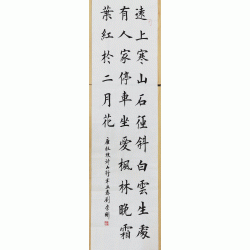 遠上寒山石徑斜白雲生處
有人家停車坐愛楓林晚霜
葉紅於二月花
唐杜牧詩山行